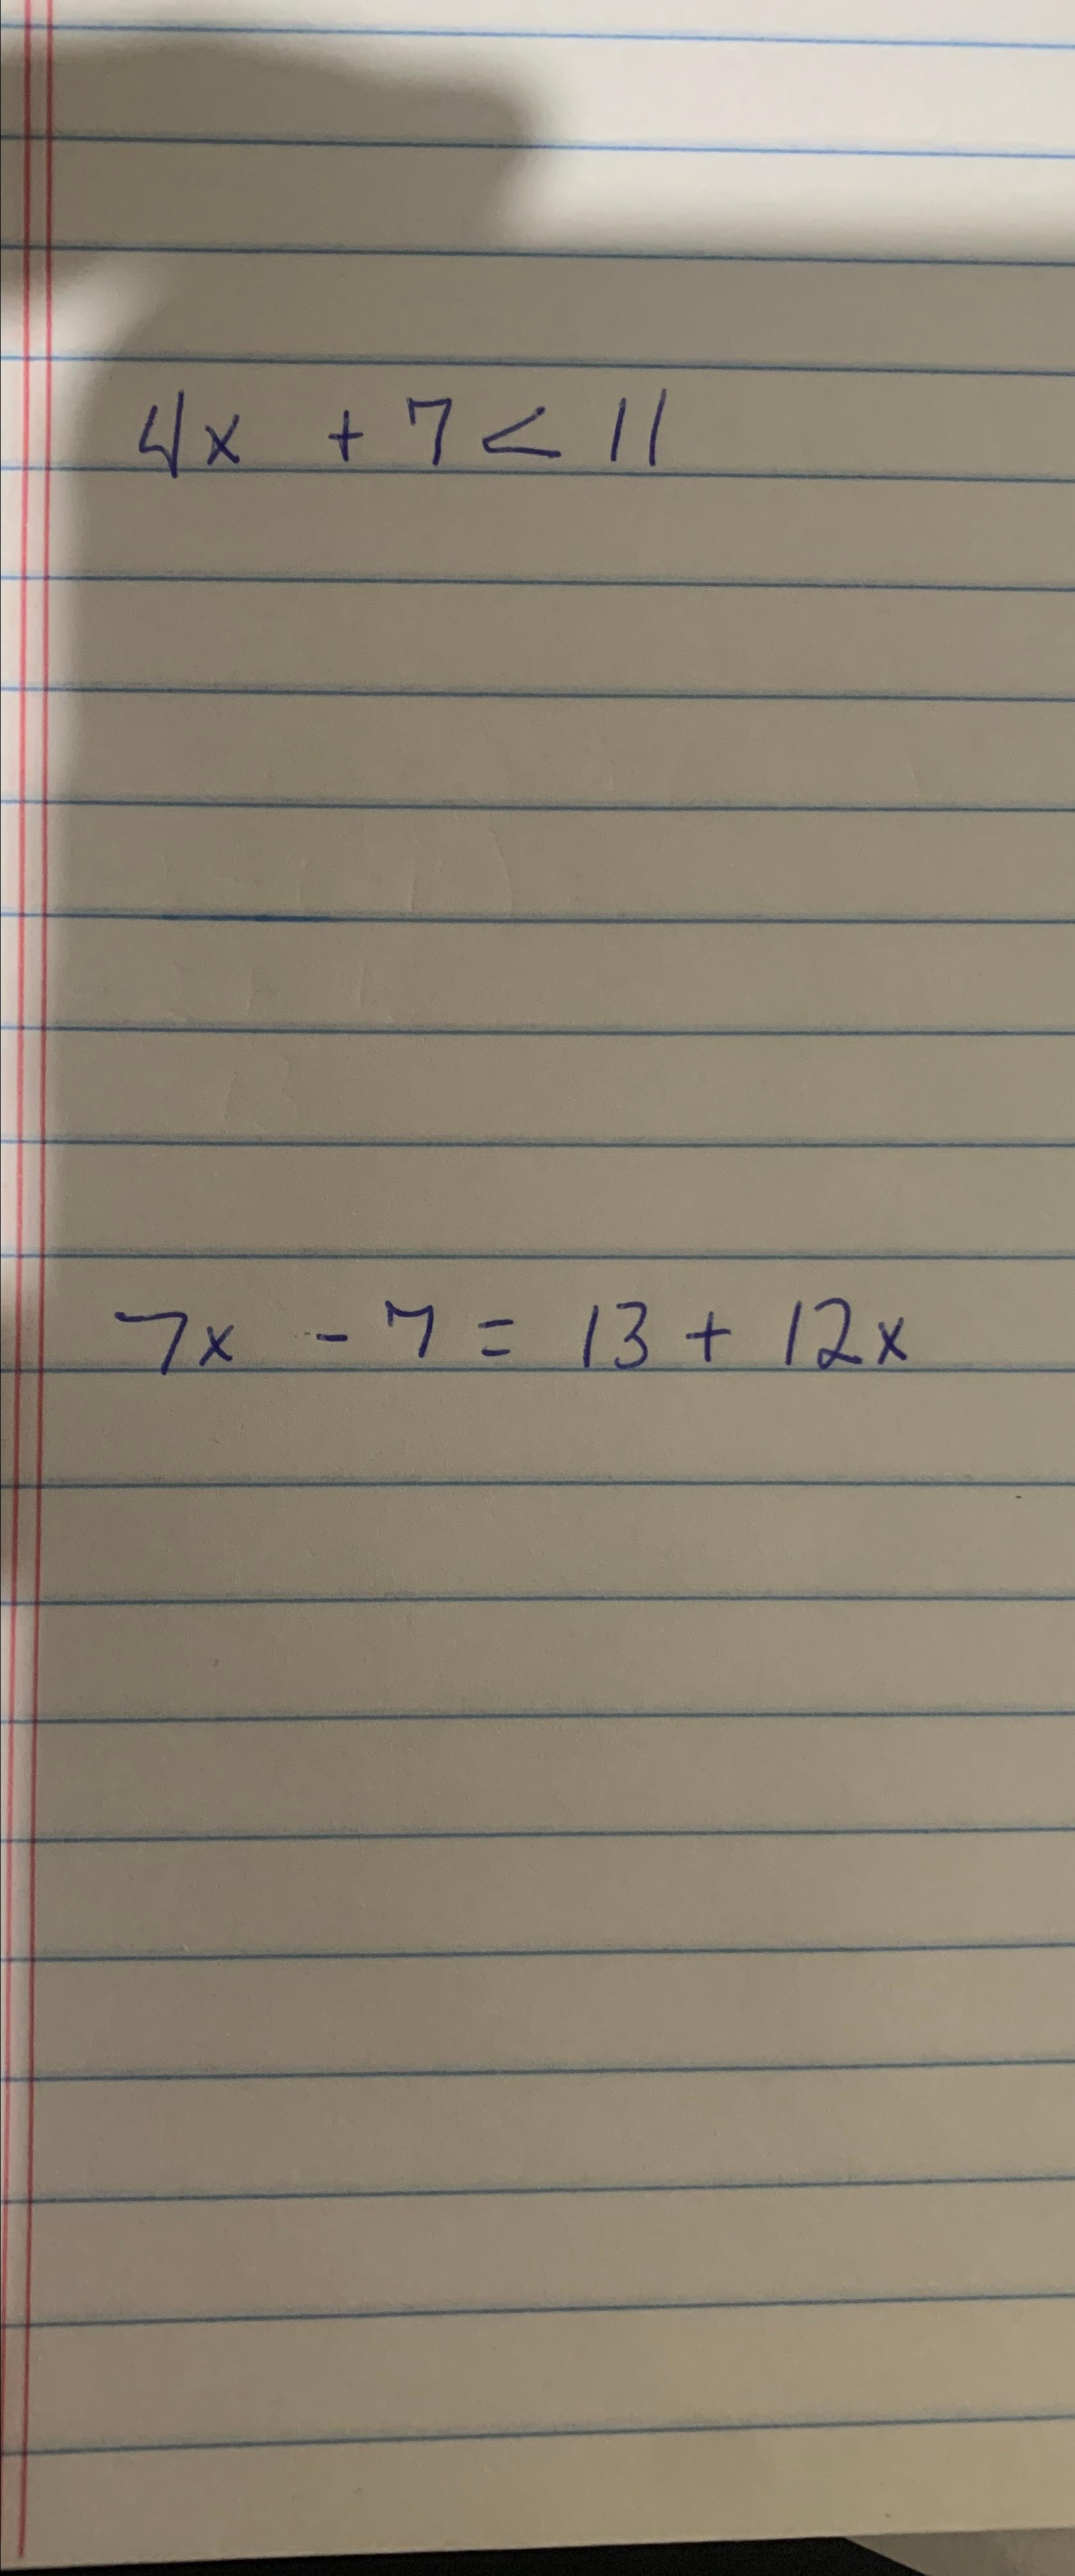 4x + 7 < 11
7x - 7 = 13 + 12x